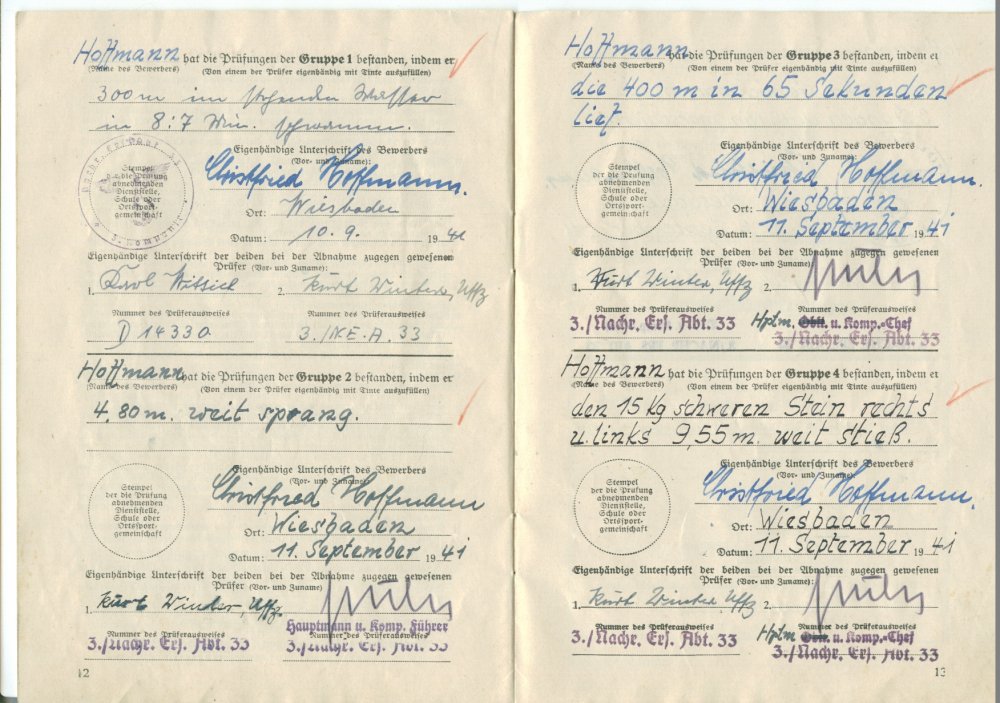 Hoffmann hat die Prüfungen der Gruppe 1 bestanden, indem er
(Name des Bewerbers) (Von einem der Prüfer eigenhändig mit Tinte auszufüllen)
300 m im stehenden Wasser
in 8:7 Min. schwamm.
Eigenhändige Unterschrift des Bewerbers
(Vor- und Zuname):
Christfried Hoffmann.
Stempel
der die Prüfung
abnehmenden
Dienststelle,
Schule oder
Ortssport-
gemeinschaft
Ort: Wiesbaden
Datum: 10. 9. 1941
Eigenhändige Unterschrift der beiden bei der Abnahme zugegen gewesenen
Prüfer (Vor- und Zuname):
1. Karl 2. Kurt Winter, Uffz
Nummer des Prüferausweises Nummer des Prüferausweises
D 14330 3./N.E.A. 33
Hoffmann hat die Prüfungen der Gruppe 2 bestanden, indem er
(Name des Bewerbers) (Von einem der Prüfer eigenhändig mit Tinte auszufüllen)
4.80 m. weit sprang.
Eigenhändige Unterschrift des Bewerbers
(Vor- und Zuname):
Christfried Hoffmann
Stempel
der die Prüfung
abnehmenden
Dienststelle,
Schule oder
Ortssport-
gemeinschaft
Ort: Wiesbaden
Datum: 11. September 1941
Eigenhändige Unterschrift der beiden bei der Abnahme zugegen gewesenen
Prüfer (Vor- und Zuname):
1. Kurt Winter, Uffz. 2.
Hauptmann u. Komp. Führer
Nummer des Prüferausweises Nummer des Prüferausweises
3./Nachr. Ers. Abt. 33 3./Nachr. Ers. Abt. 33
12
Hoffmann hat die Prüfungen der Gruppe 3 bestanden, indem er
(Name des Bewerbers) (Von einem der Prüfer eigenhändig mit Tinte auszufüllen)
die 400 m in 65 Sekunden
lief.
Eigenhändige Unterschrift des Bewerbers
(Vor- und Zuname):
Christfried Hoffmann.
Stempel
der die Prüfung
abnehmenden
Dienststelle,
Schule oder
Ortssport-
gemeinschaft
Ort: Wiesbaden
Datum: 11. September 1941
Eigenhändige Unterschrift der beiden bei der Abnahme zugegen gewesenen
Prüfer (Vor- und Zuname):
1. Kurt Winter, Uffz 2.
Nummer des Prüferausweises Nummer des Prüferausweises
3./Nachr. Ers. Abt. 33 Hptm. Oblt. u. Komp.-Chef
3./Nachr. Ers. Abt. 33
Hoffmann hat die Prüfungen der Gruppe 4 bestanden, indem er
(Name des Bewerbers) (Von einem der Prüfer eigenhändig mit Tinte auszufüllen)
den 15 Kg schweren Stein rechts
u. links 9,55 m. weit stieß.
Eigenhändige Unterschrift des Bewerbers
(Vor- und Zuname):
Christfried Hoffmann.
Stempel
der die Prüfung
abnehmenden
Dienststelle,
Schule oder
Ortssport-
gemeinschaft
Ort: Wiesbaden
Datum: 11. September 1941
Eigenhändige Unterschrift der beiden bei der Abnahme zugegen gewesenen
Prüfer (Vor- und Zuname):
1. Kurt Winter, Uffz 2.
Nummer des Prüferausweises Nummer des Prüferausweises
3./Nachr. Ers. Abt. 33 Hptm Oblt. u. Komp.-Chef
3./Nachr. Ers. Abt. 33
13